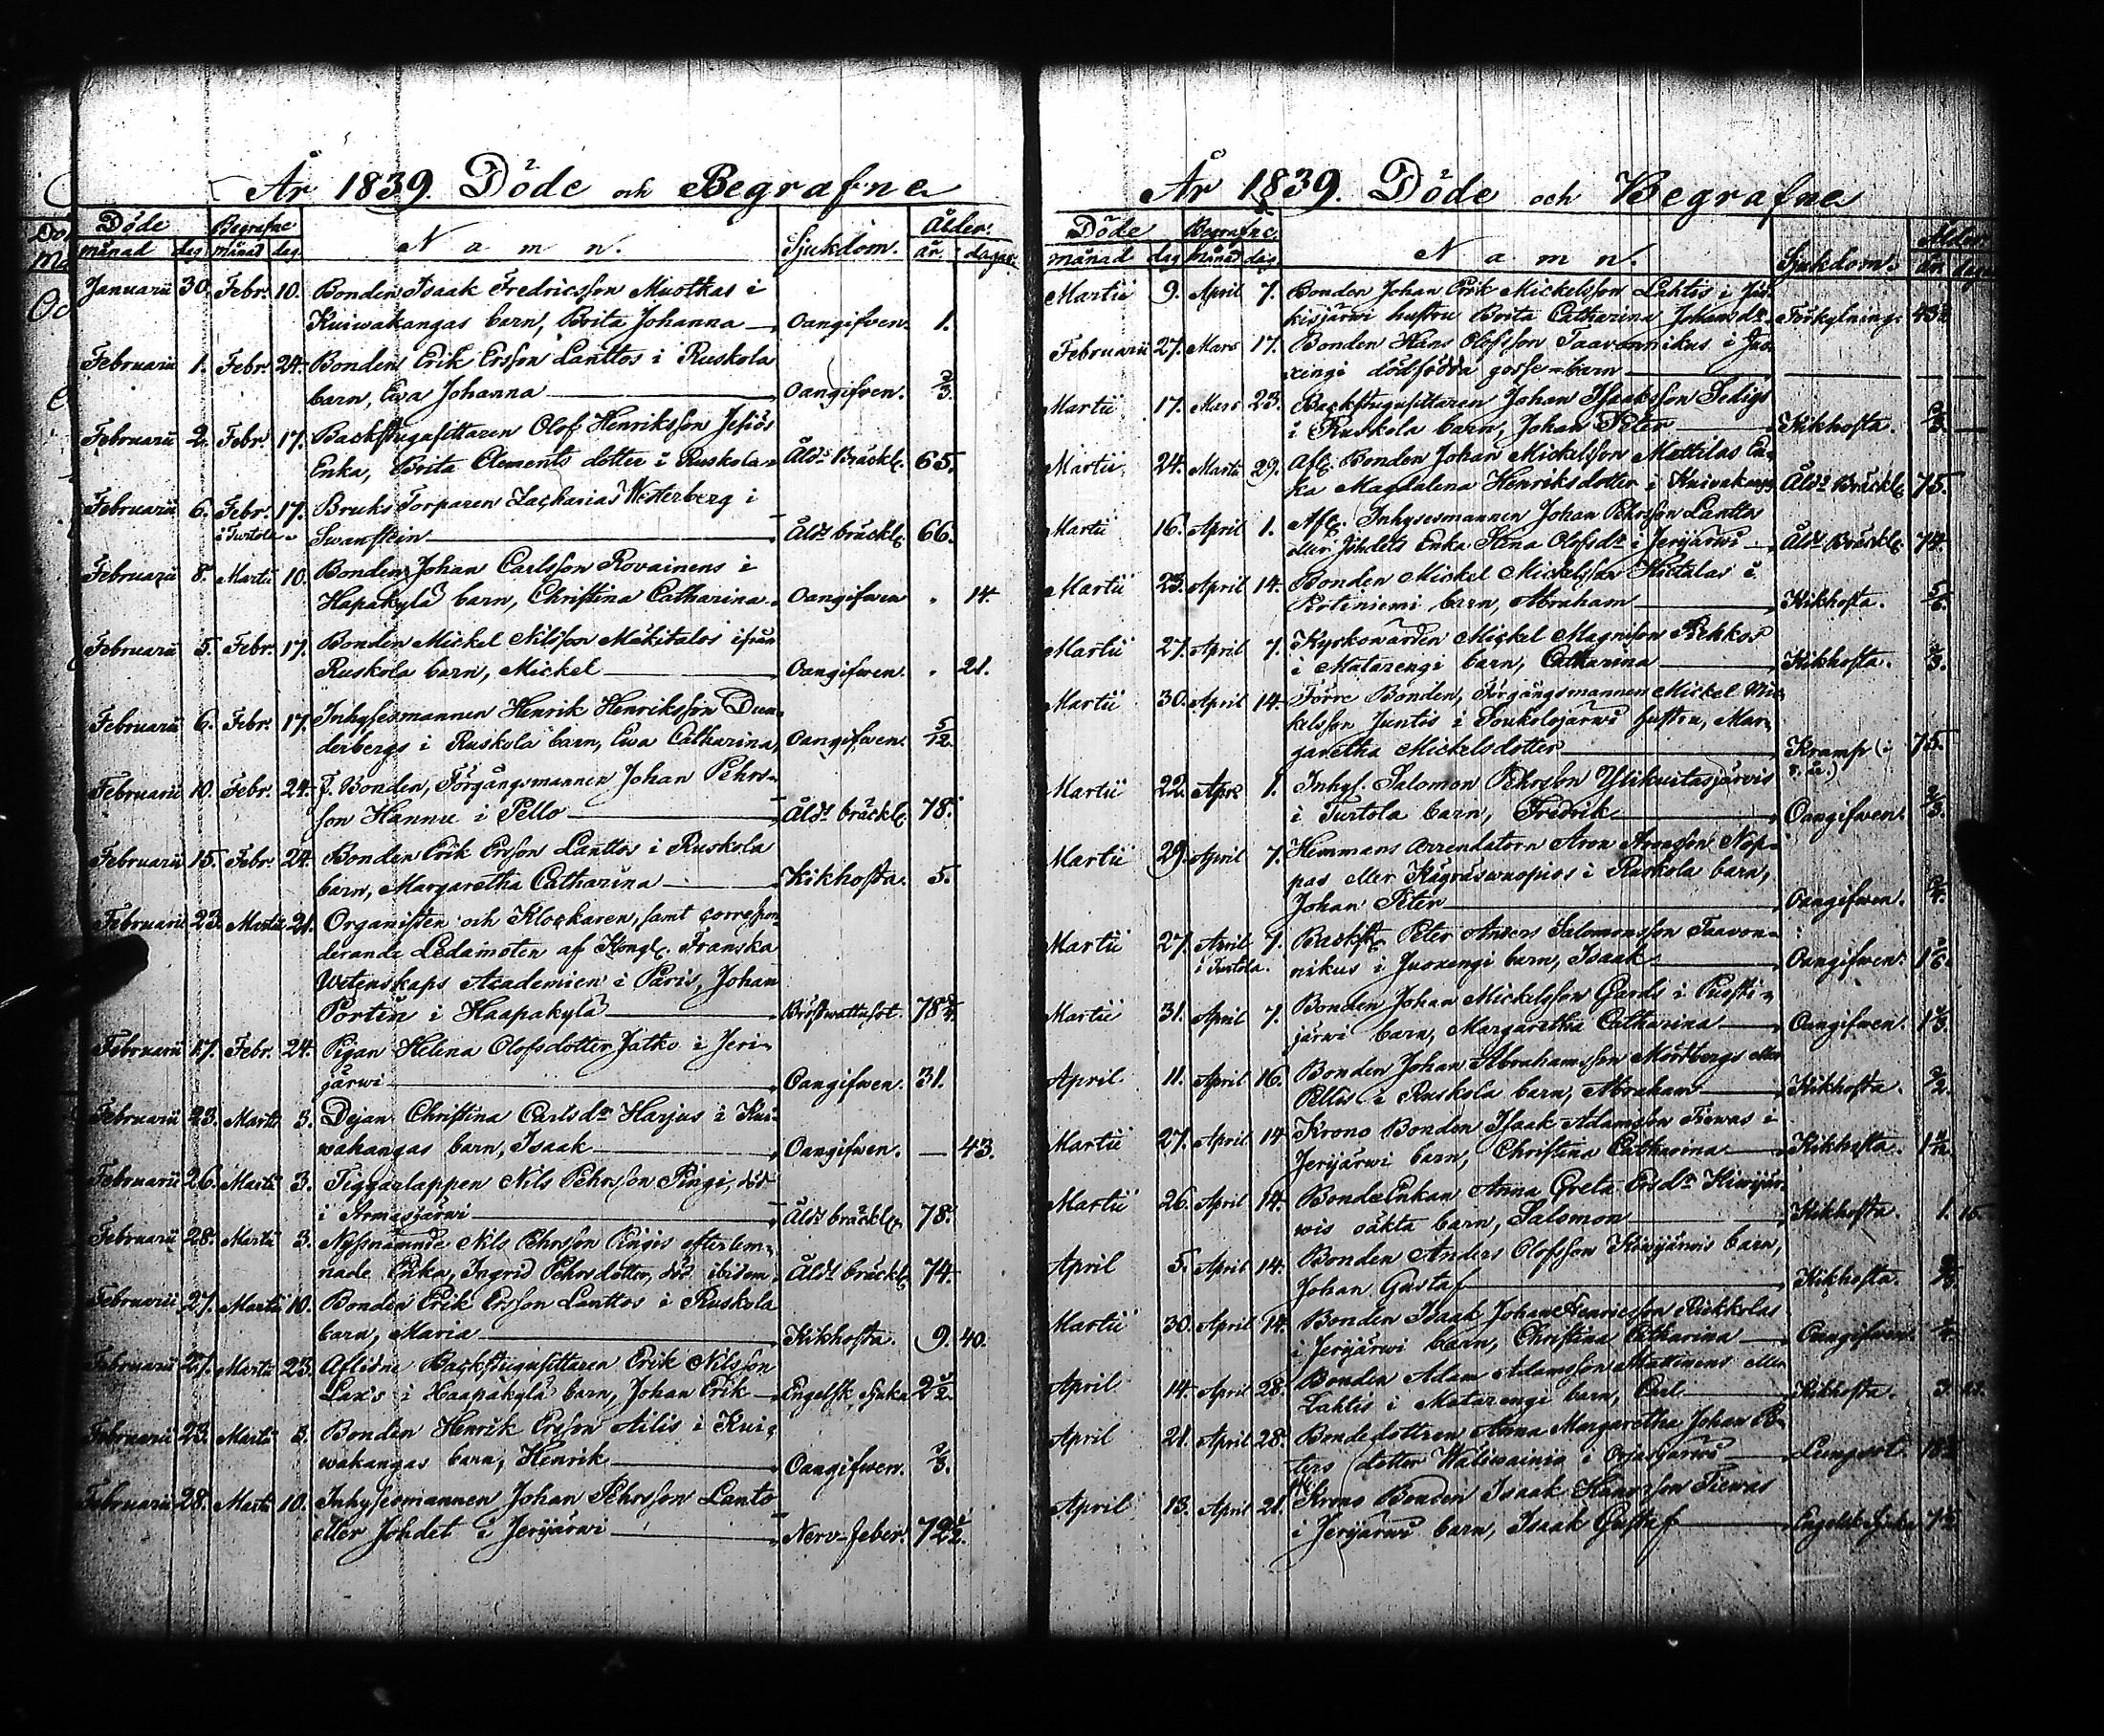 År 1839. Döde och Begrafne
Döde Begrafne Namn. Sjukdom. Ålder.
månad dag månad dag år. dagar.
Januarii 30. Febr. 10. Bonden Isaak Fredricsson Muotkas i
Kuiwakangas barn, Brita Johanna Oangifven. 1.
Februarii 1. Febr. 24. Bonden Erik Ersson Lanttos i Ruskola
barn, Ewa Johanna Oangifven.
Februarii 2. Febr. 17. Backstugusittaren Olof Henriksson Jesiös
Enka, Brita Clements dotter i Ruskola Åldr. Bräckl. 65.
Februarii 6. Febr. 17. Bruks Torparen Zacharias Westerberg i
i Turtola Swanstein Åldr. bräckl. 66.
Februarii 8. Martii 10. Bonden Johan Carlsson Rovainens i
Hapakylä barn, Christina Catharina Oangifwen " 14.
Februarii 5. Febr. 17. Bonden Mickel Nilsson Mäkitalos ifrån
Ruskola barn, Mickel Oangifwen. " 21.
Februarii 6. Febr. 17. Inhysesmannen Henrik Henriksson Dun-
derbergs i Ruskola barn, Ewa Catharina, Oangifwen. 5/12.
Februarii 10. Febr. 24. F. Bonden, Förgångsmannen Johan Pehrs-
son Hannu i Pello Åldr. bräckl. 78.
Februarii 15. Febr. 24. Bonden Erik Ersson Lanttos i Ruskola
barn, Margaretha Catharina Kikhosta. 5.
Februarii 23. Martii 21. Organisten och Klockaren, samt correspon-
derande Ledamoten af Kongl. Franska
Wetenskaps Academien i Paris, Johan
Portin i Haapakylä Bröstwattusot. 78
Februarii 17. Febr. 24. Pigan Helena Olofsdotter Jatko i Jeri-
järwi Oangifwen. 31.
Februarii 23. Martii 3. Dejan Christina Carlsdr. Harjus i Kui-
wakangas barn, Isaak Oangifwen. — 43.
Februarii 26. Martii 3. Tiggarlappen Nils Pehrsson Pingi, död
i Armasjärwi Åldr. bräckl. 78.
Februarii 28. Martii 3. Nyssnämnde Nils Pehrsson Pingis efterlem-
nade Enka, Ingrid Pehrsdotter, död ibidem, Åldr. bräckl. 74.
Februarii 27. Martii 10. Bonden Erik Ersson Lanttos i Ruskola
barn, Maria Kikhosta. 9. 40.
Februarii 27. Martii 23. Aflidne Backstugusittaren Erik Nilsson
Lax's i Haapakylä barn, Johan Erik Engelsk sjuka 2 1/2.
Februarii 23. Martii 3. Bonden Henrik Ersson Ailis i Kui-
wakangas barn, Henrik Oangifwen.
Februarii 28. Martii 10. Inhysesmannen Johan Pehrsson Lanto
eller Johdet i Jerijärwi Nerv-feber. 79 1/2.
År 1839. Döde och Begrafne
Döde Begrafne Namn. Sjukdom. Ålder
månad dag Månad dag år. dagar
Martii 9. April 7. Bonden Johan Erik Mickelsson Lahtis i
kisjärwi hustru Brita Catharina Johansdr. Förkylning.
Februarii 27. Mars 17. Bonden Hans Olofsson Taavonnikus i Juo-
xengi dödfödda gosse-barn
Martii 17. Mars 23. Backstugusittaren Johan Isaaksson Sedigs
i Ruskola barn, Johan Peter Kikhosta.
Martii 24. Martii 29. Afl. Bonden Johan Mickelsson Mattilas En-
ka Magdalena Henriksdotter i Kuivakangas Åldr. Bräckl. 75.
Martii 16. April 1. Afl. Inhysesmannen Johan Pehrsson Lantto
eller Johdets Enka Stina Olofsdr. i Jerijärwi Åldr. Bräckl. 74.
Martii 23. April 14. Bonden Mickel Mickelsson Kietalas i
Portiniemi barn, Abraham Kikhosta. 5/6.
Martii 27. April 7. Kyrkowärden Mickel Magnisson Pekkos
i Matarengi barn, Catharina Kikhosta.
Martii 30. April 14. Förre Bonden, Förgångsmannen Mickel Mic-
kelsson Juntis i Soukolojärwi hustru, Mar-
garetha Mickelsdotter Kramp 75.
Martii 22. Apr. 1. Inhys. Salomon Pehrsson Ylikuitasjärvis
i Turtola barn, Fredrik Oangifwen.
Martii 29. April 7. Hemmans arrendatorn Aron Aronsson Nop-
pas eller i Ruskola barn,
Johan Peter Oangifwen.
Martii 27. April 7. Backst. Peter Anders Salomonsson Taavon-
i Turtola. nikus i Juoxengi barn, Isaak Oangifwen.
Martii 31. April 7. Bonden Johan Mickelsson Gards i Puosti-
järwi barn, Margaretha Catharina Oangifwen.
April 11. April 16. Bonden Johan Abrahamsson Mörtbergs eller
Pellis i Ruskola barn, Abraham Kikhosta. 1/2.
Martii 27. April 14. Krono Bonden Isaak Adamsson Tiewas i
Jerijärwi barn, Christina Catharina Kikhosta.
Martii 26. April 14. BondeEnkan Anna Greta Ersdr. Kiwijär-
wis oäkta barn, Salomon Kikhosta. 1.
April 5. April 14. Bonden Anders Olofsson Kiwijärvis barn,
Johan Gustaf Kikhosta.
Martii 30. April 14. Bonden Isaak Johan Henricsson Rukkolas
i Jerijärwi barn, Christina Catharina Oangifwen.
April 14. April 28. Bonden Adam Adamsson Mattinens eller
Lahtis i Matarengi barn, Carl Kikhosta. 3
April 21. April 28. Bondedottren Anna Margaretha Johan Pe-
ters dotter Waliwainio i Orjasjärwi Lungsot.
April 13. April 21. Krono Bonden Isaak Hansson Tiewas
i Jerijärwi barn, Isaak Gustaf Engelsk sjuka